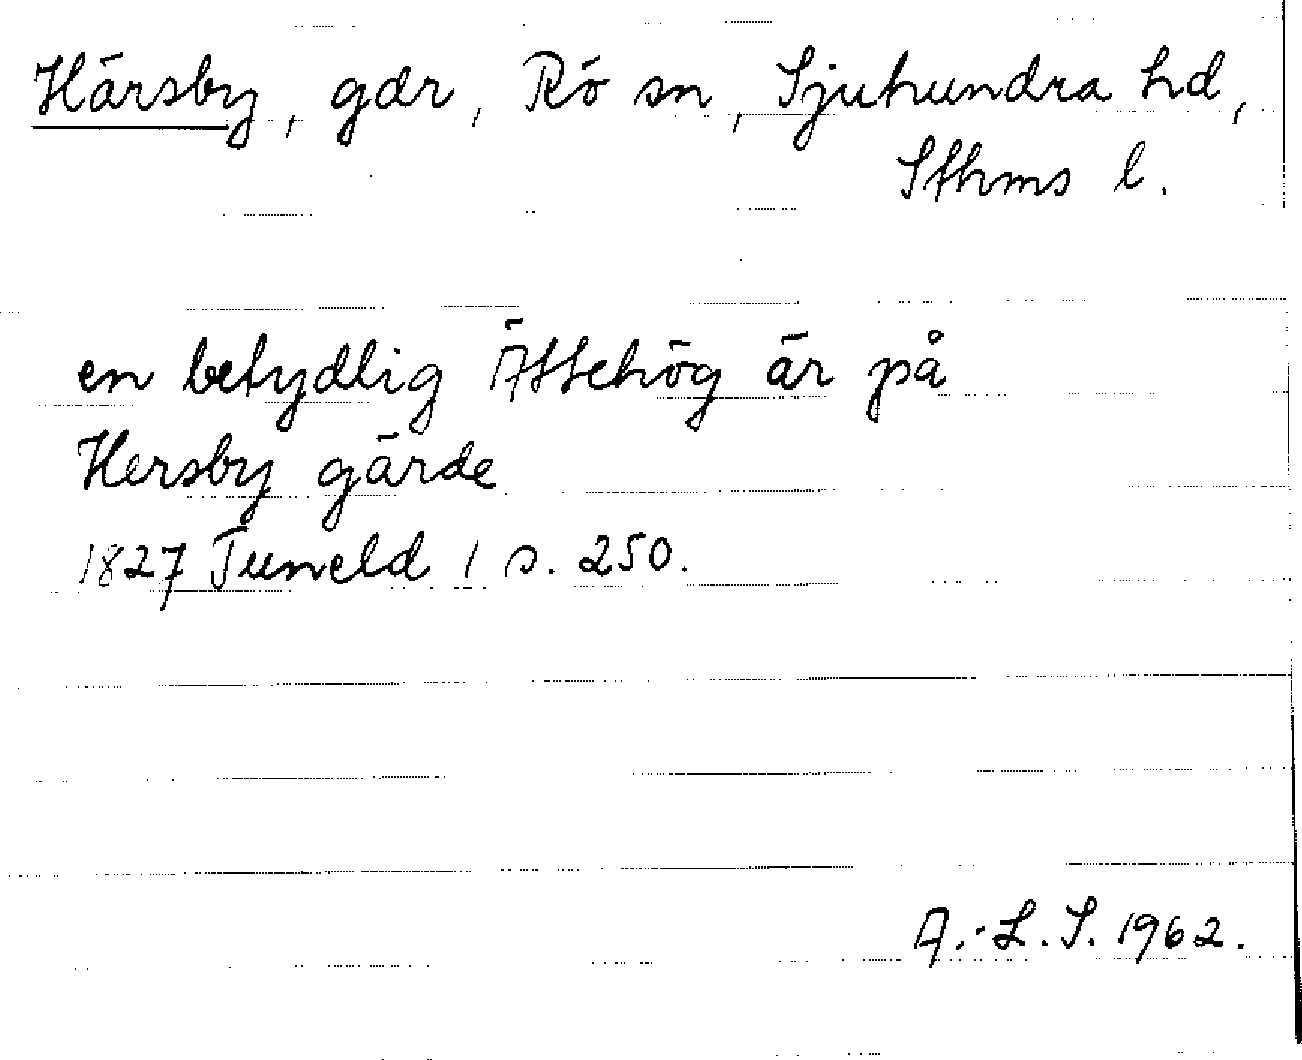 Härsby, gdr, Rö sn, Sjuhundra hd,
Sthms l.
en betydlig Ättehög är på
Hersby gärde
1827 Tuneld 1 s. 250.
A.-L. S. 1962.